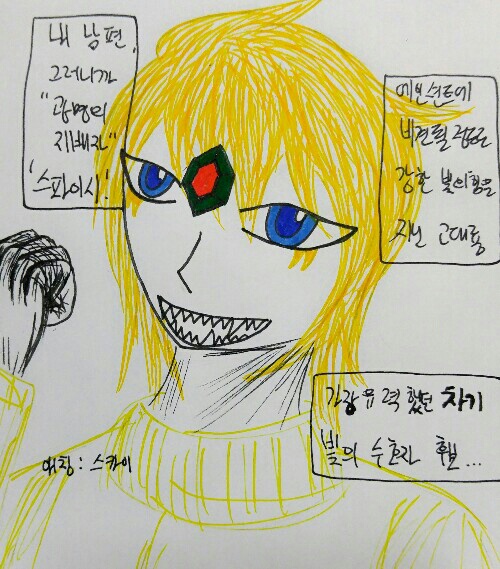 내 남편,
그러니까
"광명의
지배자"
'스파이시'.
에인션트에
비견될 정도로
강한 빛의 힘을
지닌 고대룡
가장 유력했던 차기
빛의 수호자 후보...
애칭: 스카이